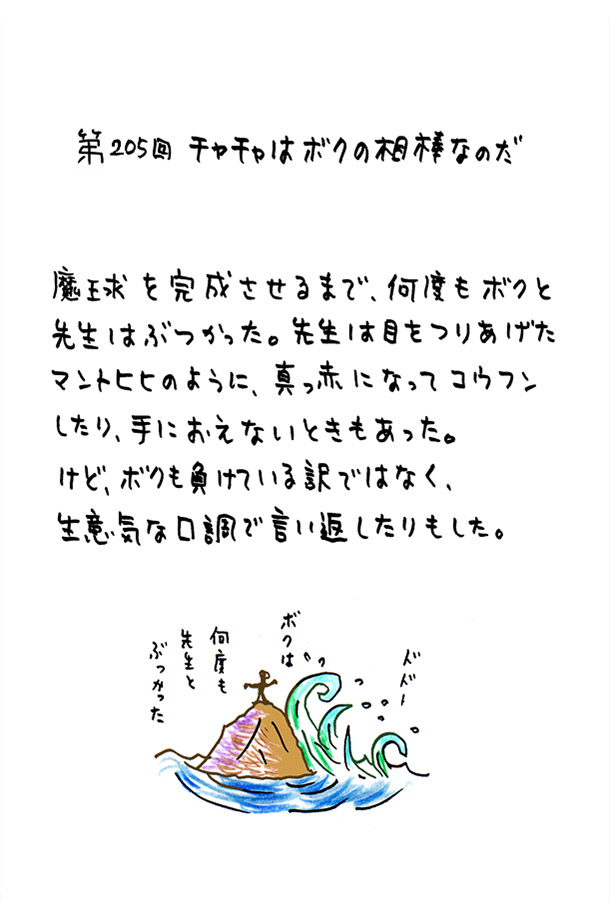 第205回 チャチャはボクの相棒なのだ
魔球を完成させるまで、何度もボクと
先生はぶつかった。先生は目をつりあげた
マントヒヒのように、真っ赤になってコウフン
したり、手におえないときもあった。
けど、ボクも負けている訳ではなく、
生意気な口調で言い返したりもした。
ボクは
何度も
先生と
ぶつかった
ドドー